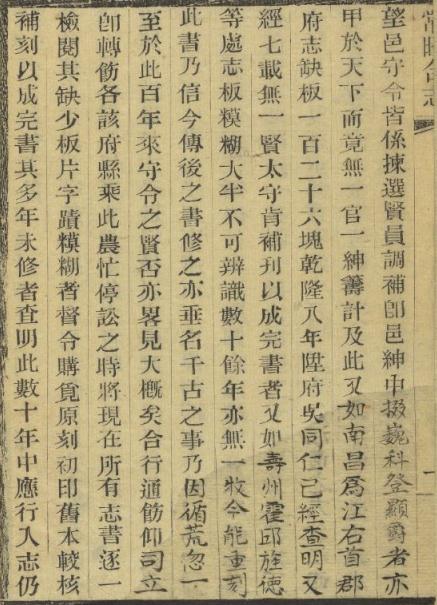 望邑守令皆係揀選賢員調補卽邑紳中掇巍科登顯爵者亦
甲於天下而竟無一官一紳籌計及此又如南昌爲江右首郡
府志缺板一百二十六塊乾隆八年陞府吳同仁已經查明又
經七載無一賢太守肯補刊以成完書者又如壽州霍邱旌德
等處志板糢糊大半不可辨識數十餘年亦無一牧令能重刻
此書乃信今傳後之書修之亦垂名千古之事乃因循荒忽一
至於此百年來守令之賢否亦畧見大槪矣合行通飭仰司立
卽轉飭各該府縣乘此農忙停訟之時將現在所有志書逐一
檢閱其缺少板片字蹟糢糊者督令購覓原刻初印舊本較核
補刻以成完書其多年未修者查明此數十年中應行入志仍